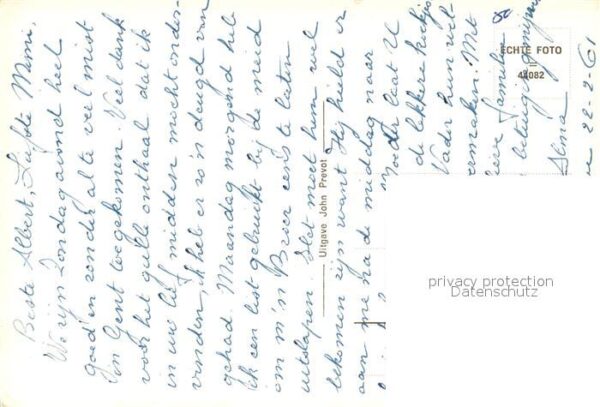 Beste Albert, Liefste Mimi,
We zijn Zondag avond heel
goed en zonder al te veel mist
in Gent toegekomen. Veel dank
voor het gulle onthaal dat ik
in uw lief midden mocht onder-
vinden, ik heb er zo'n deugd van
gehad. Maandag morgend heb
ik een list gebruikt bij de meid
om m'n Broer eens te laten
uitslapen. Het moet hem wel
bekomen zijn want hij hield er
aan me na de middag naar
Moeder laat U
de lekkere
Vader hun
Met
Familie
betuigingen
Alma
22-2-61
Uitgave John Prevot
ECHTE FOTO
11
44082
privacy protection
Datenschutz